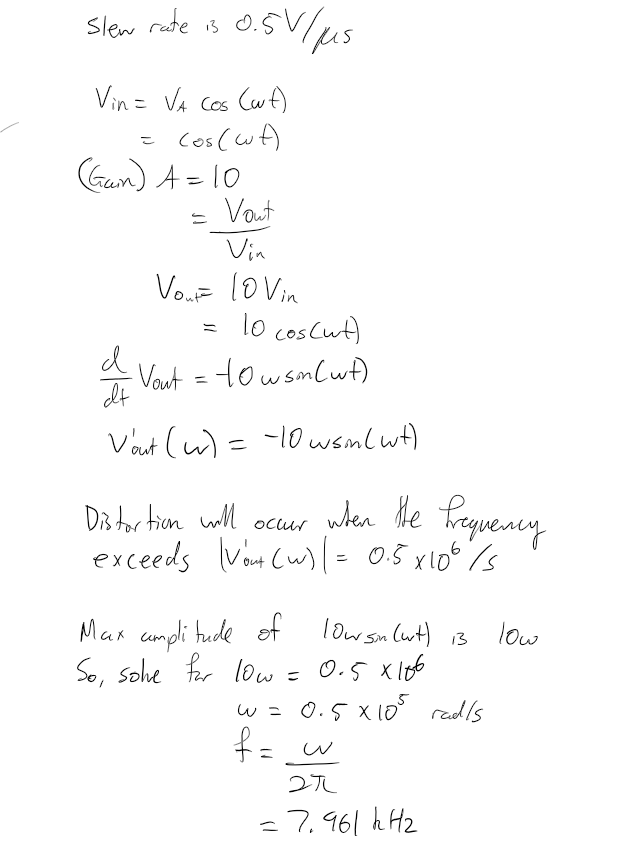 Slew rate is 0.5V/μs
Vin = VA cos(ωt)
= cos(ωt)
(Gain) A = 10
= Vout
Vin
Vout = 10 Vin
= 10 cos(ωt)
d/dt Vout = -10 ω sin(ωt)
V'out(ω) = -10 ω sin(ωt)
Distortion will occur when the frequency
exceeds |V'out(ω)| = 0.5 x10⁶ /s
Max amplitude of 10ω sin(ωt) is 10ω
So, solve for 10ω = 0.5 x 10⁶
ω = 0.5 x 10⁵ rad/s
f = ω
2π
= 7.961 kHz